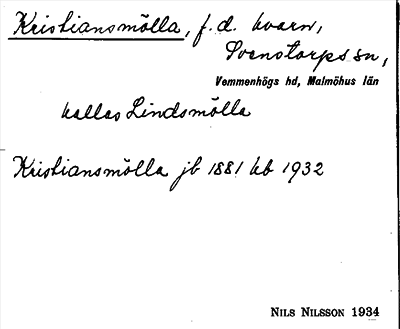 Kristiansmölla, f.d. kvarn,
Svenstorps sn,
Vemmenhögs hd, Malmöhus län
kallas Lindsmölla
Kristiansmölla jb 1881 kb 1932
NILS NILSSON 1934